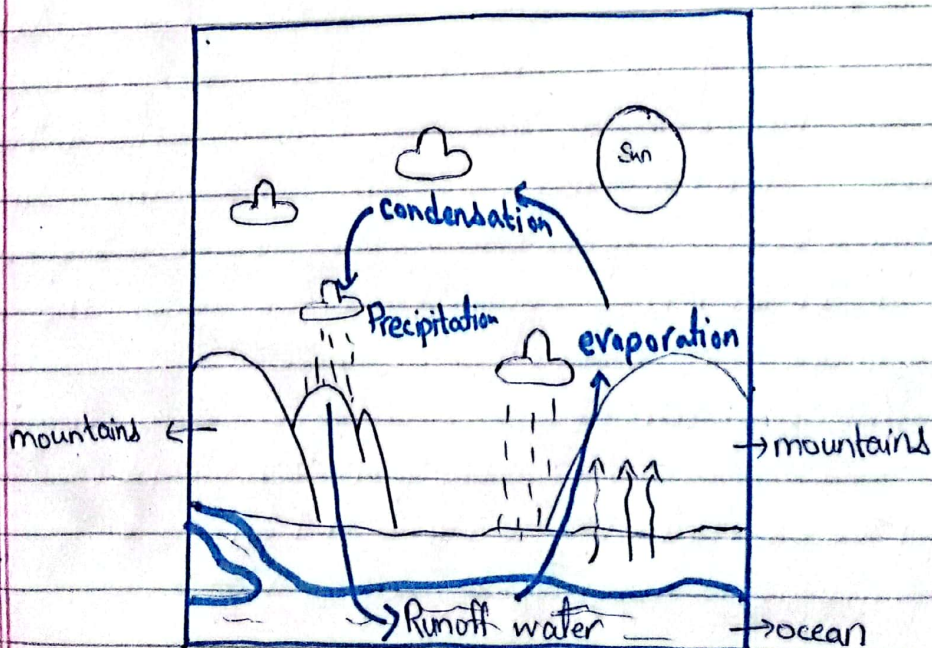 Sun
condensation
Precipitation
evaporation
mountains
mountains
Runoff water
ocean